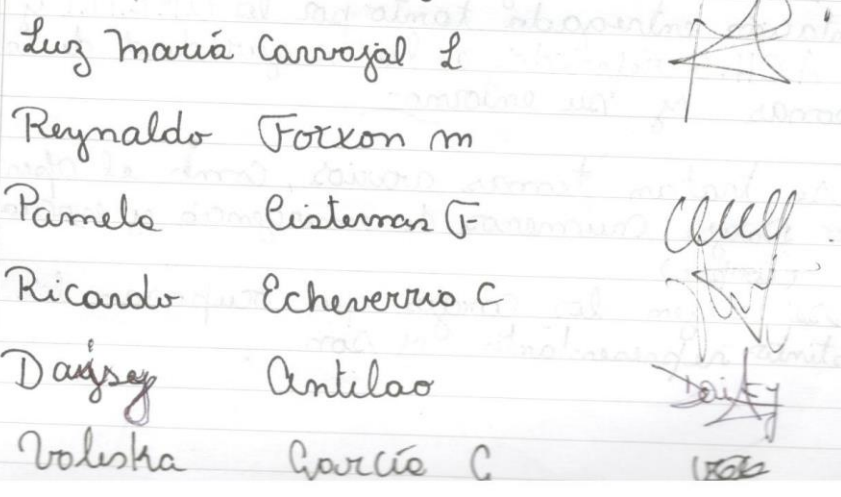 Luz María Carvajal L
Reynaldo Forxon M
Pamela Cisternas F
Ricardo Echeverría C
Daysey Antilao Daisy
Valeska García C